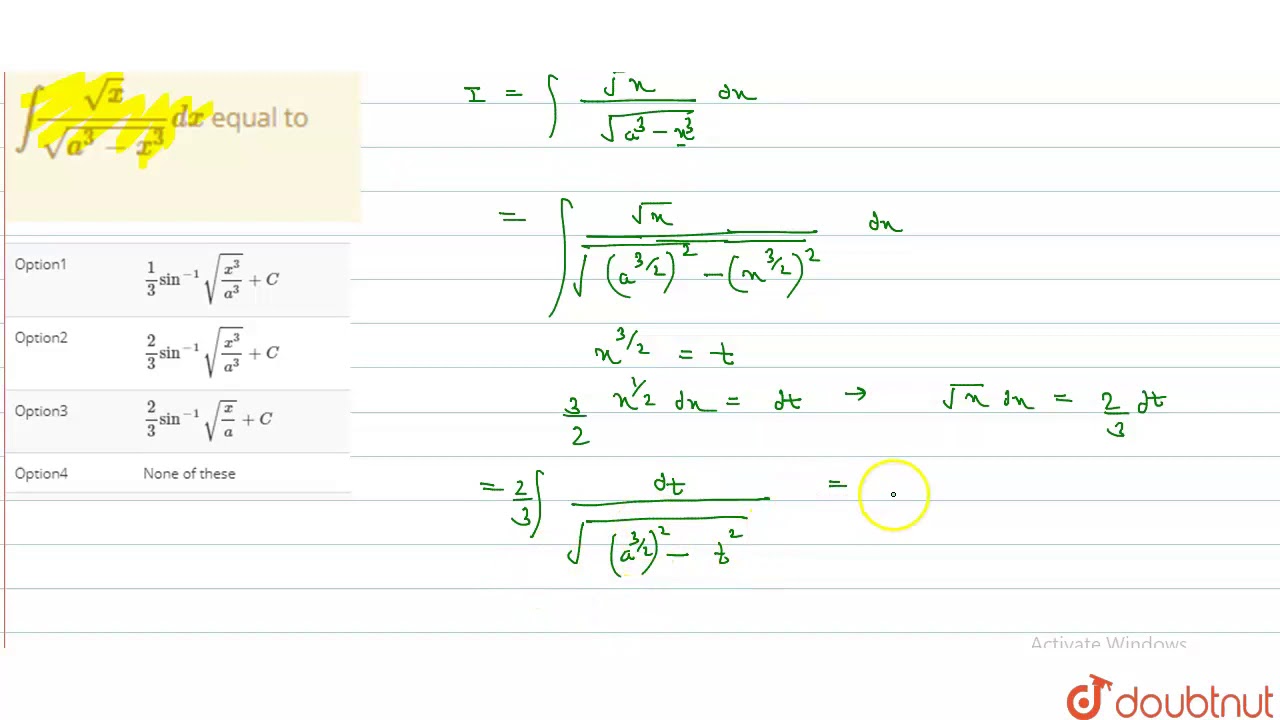 ∫ √x / √(a³ − x³) dx equal to
Option1 1/3 sin⁻¹ √(x³/a³) + C
Option2 2/3 sin⁻¹ √(x³/a³) + C
Option3 2/3 sin⁻¹ √(x/a) + C
Option4 None of these
I = ∫ √x / √(a³ − x³) dx
= ∫ √x / √((a^(3/2))² − (x^(3/2))²) dx
x^(3/2) = t
3/2 x^(1/2) dx = dt → √x dx = 2/3 dt
= 2/3 ∫ dt / √((a^(3/2))² − t²) =
Activate Windows
doubtnut